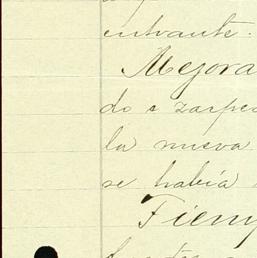 entrante.
Mejora
do s zarpe
la nueva
se había
Tiemp